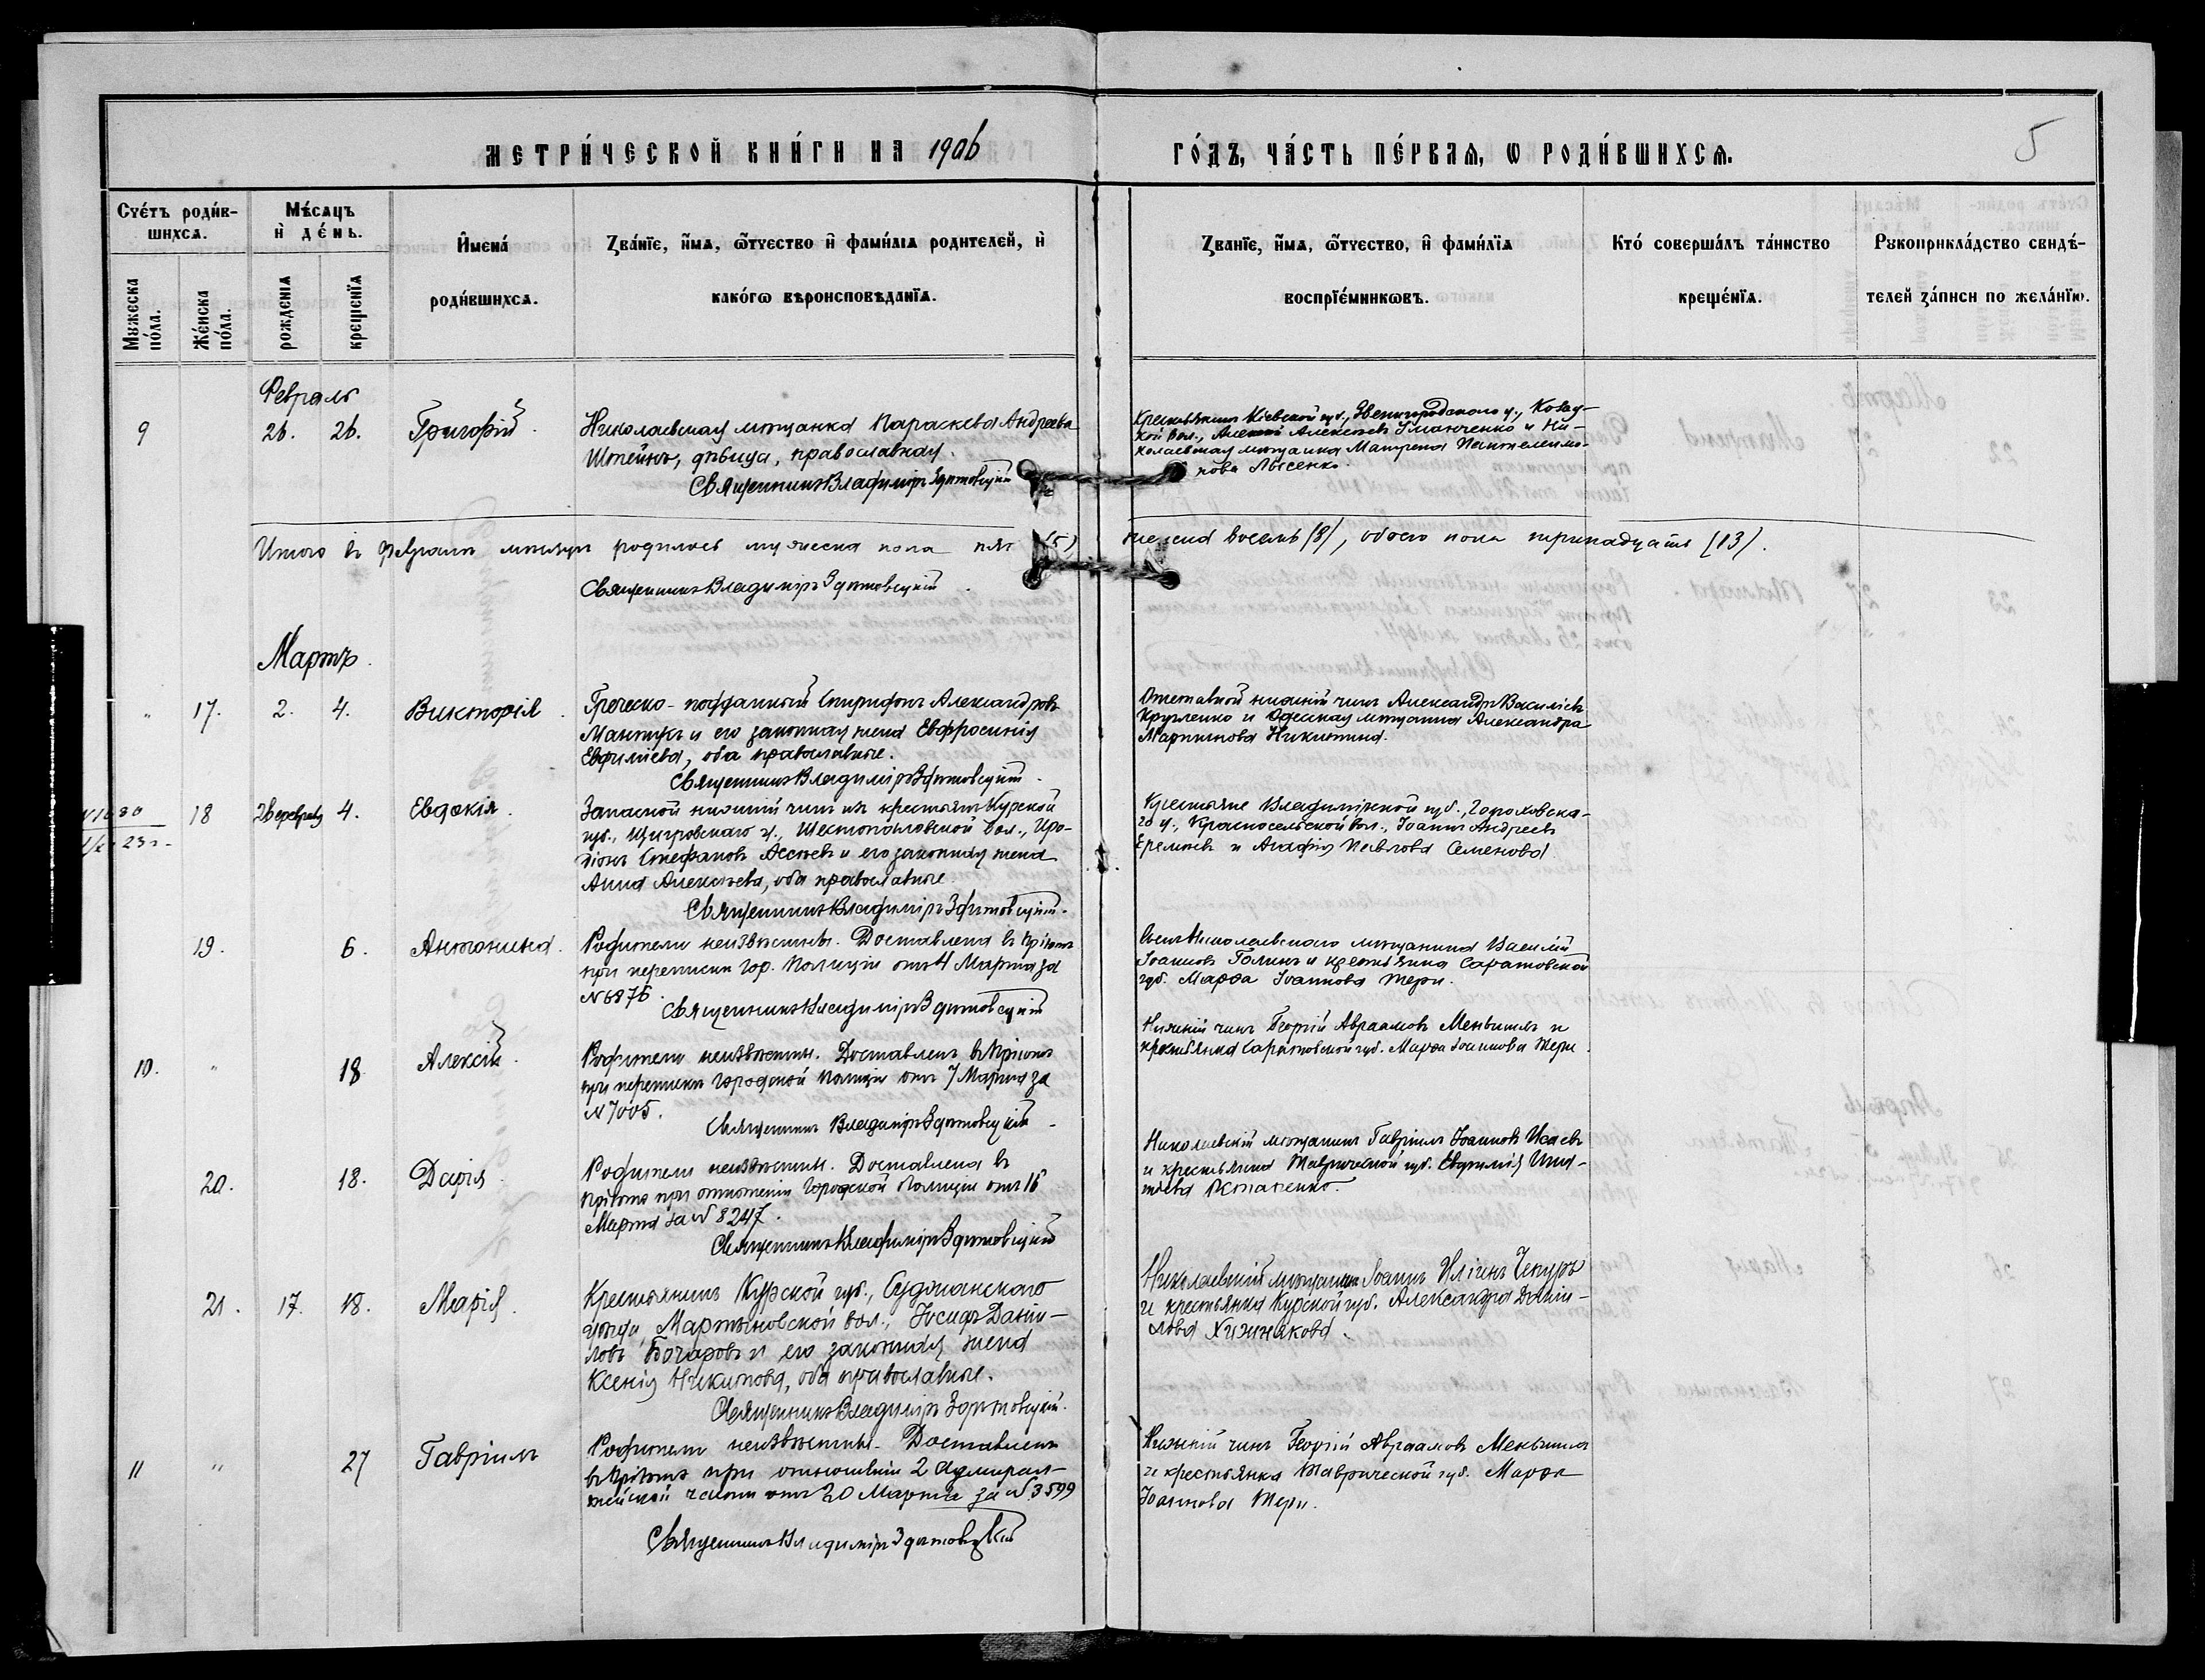 МЕТРИ́ЧЕСКОЙ КНИ́ГИ НА 1906 ГО́ДЪ, ЧА́СТЬ ПЕ́РВАЯ, Ѡ РОДИ́ВШИХСЯ.
5
Счє́тъ роди́в-
шихсѧ.
Мѣ́сѧцъ
и҆ де́нь.
И҆мена́
роди́вшихсѧ.
Зва́нїе, и҆́мѧ, ѻ҆́тчество и҆ фами́лїѧ родителей, и҆
како́гѡ вѣроисповѣданїѧ.
Зва́нїе, и҆́мѧ, ѻ҆́тчество, и҆ фами́лїѧ
воспрїе́мникѡвъ.
Кто́ соверша́лъ та́инство
креще́нїѧ.
Рукоприкла́дство свидѣ́-
телей за́писи по жела́нїю.
Мужеска
по́ла.
Же́нска
по́ла.
рожденїѧ
крещенїѧ
Февраль
9
26. 26.
Григорій.
Николаевская мѣщанка Параскева Андреева
Штейнъ, дѣвица, православная.
Священникъ Владиміръ
Крестьянинъ Кіевской губ., Звенигородскаго у.,
кой вол., Алексѣевъ Уманченко и Ни-
колаевская мѣщанка Матрена Пантелеимо-
нова Лысенко.
Итого въ Февралѣ мѣсяцѣ родилось мужеска пола пять (5)
женска восемь (8), обоего пола тринадцать (13).
Священникъ Владиміръ
Мартъ.
" 17. 2. 4.
Викторія.
Греческо-подданный Спиридонъ Александровъ
и его законная жена Евфросинія
Евфиміева, оба православные.
Священникъ Владиміръ
Отставной нижній чинъ Александръ Василіевъ
Кругленко и Одесская мѣщанка Александра
Мартинова Никитина.
18 26 февраля 4.
Евдокія.
Запасной нижній чинъ изъ крестьянъ Курской
губ., Щигровскаго у., вол., Иро-
діонъ Стефановъ и его законная жена
Анна Алексѣева, оба православные.
Священникъ Владиміръ
Крестьяне Владимірской губ., Гороховска-
го у., Красносельской вол., Іоаннъ Андреевъ
Еремѣевъ и Агафія Павлова Семенова.
19. 6.
Антонина.
Родители неизвѣстны. Доставлена въ Пріютъ
при перепискѣ гор. Полиціи отъ 4 Марта за
N 6876.
Священникъ Владиміръ
Сынъ Николаевскаго мѣщанина Василій
Іоанновъ Голикъ и крестьянка Саратовской
губ. Марфа Іоаннова Терн.
10. " 18
Алексій.
Родители неизвѣстны. Доставленъ въ Пріютъ
при перепискѣ городской Полиціи отъ 7 Марта за
N 7005.
Священникъ Владиміръ
Нижній чинъ Георгій Авраамовъ и
крестьянка Саратовской губ. Марфа Іоаннова Терн.
20. 18.
Дарія
Родители неизвѣстны. Доставлена въ
Пріютъ при отношеніи Городской Полиціи отъ 16
Марта за N 8247.
Священникъ Владиміръ
Николаевскій мѣщанинъ Гавріилъ Іоанновъ Исаевъ
и крестьянка Таврической губ. Евфимія Игна-
тіева Потапенко.
21. 17. 18.
Марія.
Крестьянинъ Курской губ., Суджанскаго
уѣзда, Мартыновской вол., Іосифъ Дании-
ловъ Бочаровъ и его законная жена
Ксенія Никитова, оба православные.
Священникъ Владиміръ
Николаевскій мѣщанинъ Іоаннъ Иліинъ Чепуръ
и крестьянка Курской губ. Александра Дании-
лова Хижнякова.
11 " 27
Гавріилъ
Родители неизвѣстны. Доставленъ
въ Пріютъ при отношеніи 2 Адмирал-
тейской части отъ 20 Марта за N 3599
Священникъ Владиміръ
Нижній чинъ Георгій Авраамовъ
и крестьянка Таврической губ. Марфа
Іоаннова Терн.